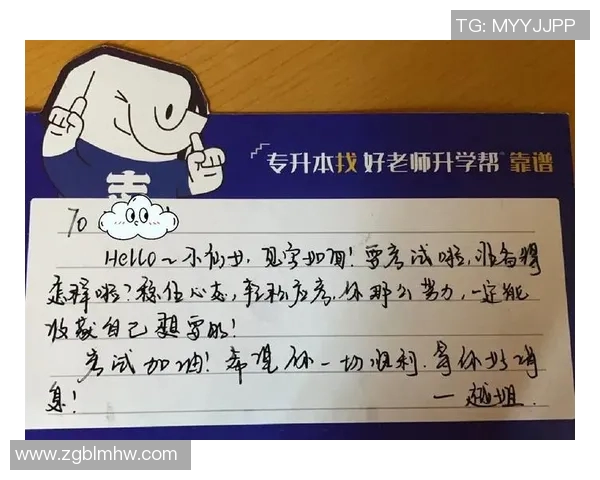 TG: MYYJJPP
专升本找 好老师升学帮 靠谱
To
Hello~小仙女,见字如面!要考试啦,准备得
怎样啦?稳住心态,轻松应考,你那么努力,一定能
收获自己想要的!
考试加油!希望你一切顺利,等你好消
息!
—越姐.
www.zgblmhw.com